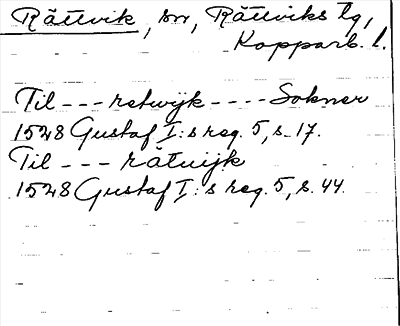 Rättvik, sn, Rättviks tg,
Kopparb. l.
Til --- retwijk ---- Sokner
1528 Gustaf I:s reg. 5, s. 17.
Til --- rätuijk
1528 Gustaf I:s reg. 5, s. 44.